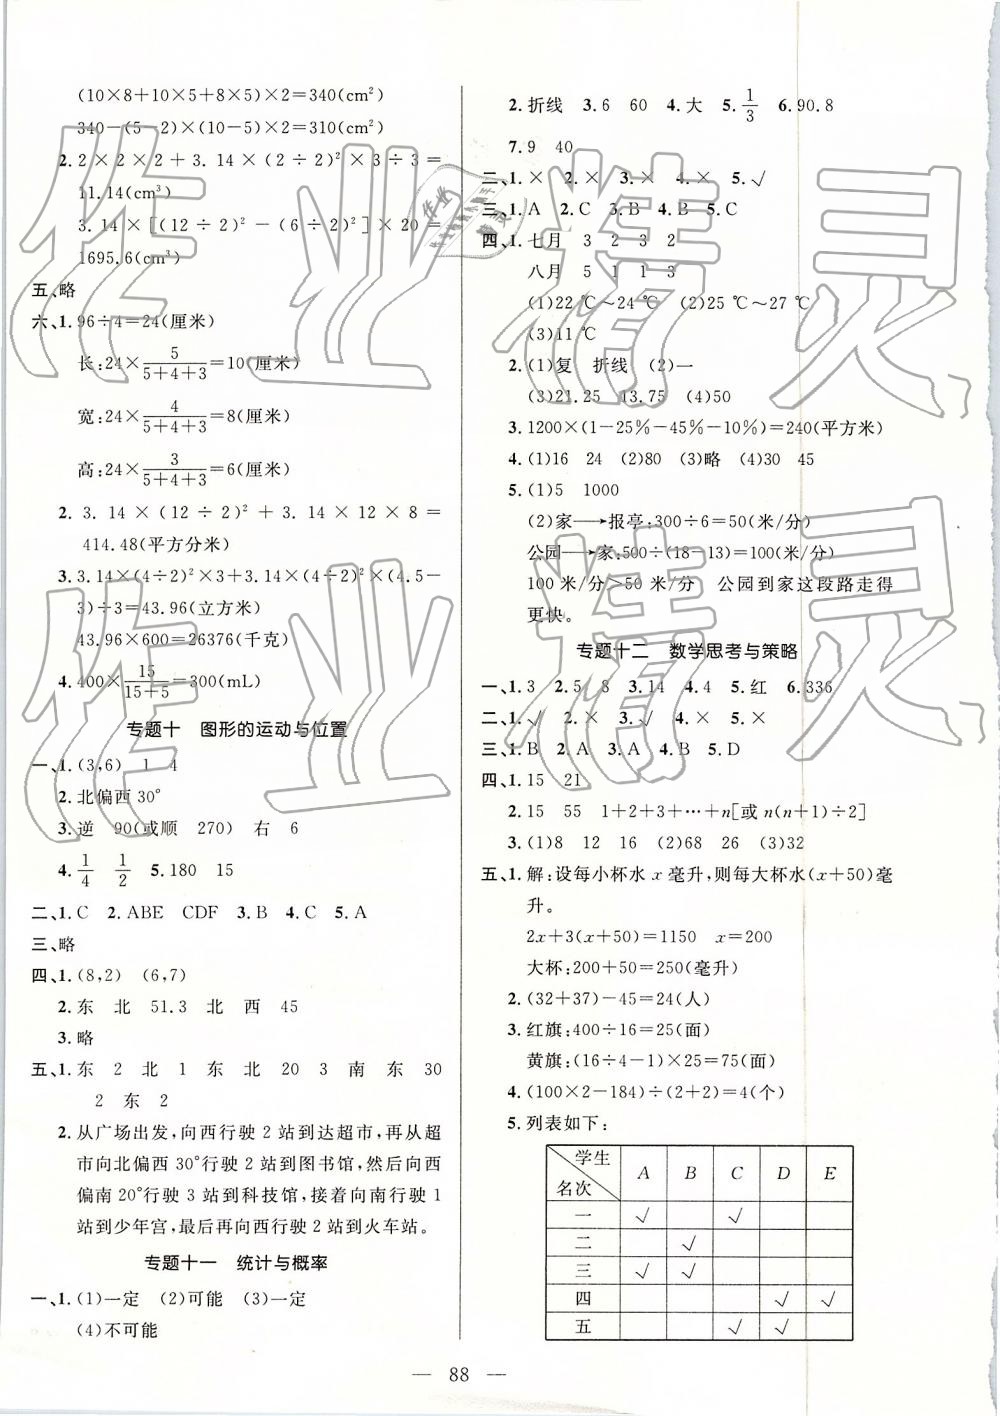 (10×8+10×5+8×5)×2=340(cm²)
340-(5-2)×(10-5)×2=310(cm²)
2. 2×2×2+3.14×(2÷2)²×3÷3=
11.14(cm³)
3.14×[(12÷2)²-(6÷2)²]×20=
1695.6(cm³)
五、略
六、1. 96÷4=24(厘米)
长:24×5/(5+4+3)=10(厘米)
宽:24×4/(5+4+3)=8(厘米)
高:24×3/(5+4+3)=6(厘米)
2. 3.14×(12÷2)²+3.14×12×8=
414.48(平方分米)
3. 3.14×(4÷2)²×3+3.14×(4÷2)²×(4.5-
3)÷3=43.96(立方米)
43.96×600=26376(千克)
4. 400×15/(15+5)=300(mL)
专题十 图形的运动与位置
一、1. (3,6) 1 4
2. 北偏西30°
3. 逆 90(或顺 270) 右 6
4. 1/4 1/2 5. 180 15
二、1. C 2. ABE CDF 3. B 4. C 5. A
三、略
四、1. (8,2) (6,7)
2. 东 北 51.3 北 西 45
3. 略
五、1. 东 2 北 1 东 北 20 3 南 东 30
2 东 2
2. 从广场出发,向西行驶2站到达超市,再从超
市向北偏西30°行驶2站到图书馆,然后向西
偏南20°行驶3站到科技馆,接着向南行驶1
站到少年宫,最后再向西行驶2站到火车站。
专题十一 统计与概率
一、1. (1)一定 (2)可能 (3)一定
(4)不可能
2. 折线 3. 6 60 4. 大 5. 1/3 6. 90.8
7. 9 40
二、1. × 2. × 3. × 4. × 5. √
三、1. A 2. C 3. B 4. B 5. C
四、1. 七月 3 2 3 2
八月 5 1 1 3
(1)22 ℃~24 ℃ (2)25 ℃~27 ℃
(3)11 ℃
2. (1)复 折线 (2)一
(3)21.25 13.75 (4)50
3. 1200×(1-25%-45%-10%)=240(平方米)
4. (1)16 24 (2)80 (3)略 (4)30 45
5. (1)5 1000
(2)家→报亭:300÷6=50(米/分)
公园→家:500÷(18-13)=100(米/分)
100米/分>50米/分 公园到家这段路走得
更快。
专题十二 数学思考与策略
一、1. 3 2. 5 8 3. 14 4. 4 5. 红 6. 336
二、1. √ 2. × 3. √ 4. × 5. ×
三、1. B 2. A 3. A 4. B 5. D
四、1. 15 21
2. 15 55 1+2+3+…+n[或n(n+1)÷2]
3. (1)8 12 16 (2)68 26 (3)32
五、1. 解:设每小杯水x毫升,则每大杯水(x+50)毫
升。
2x+3(x+50)=1150 x=200
大杯:200+50=250(毫升)
2. (32+37)-45=24(人)
3. 红旗:400÷16=25(面)
黄旗:(16÷4-1)×25=75(面)
4. (100×2-184)÷(2+2)=4(个)
5. 列表如下:
学生 名次 A B C D E
一 √ √
二 √
三 √ √
四 √ √
五 √ √
— 88 —
作业精灵
作业精灵
作业
精灵